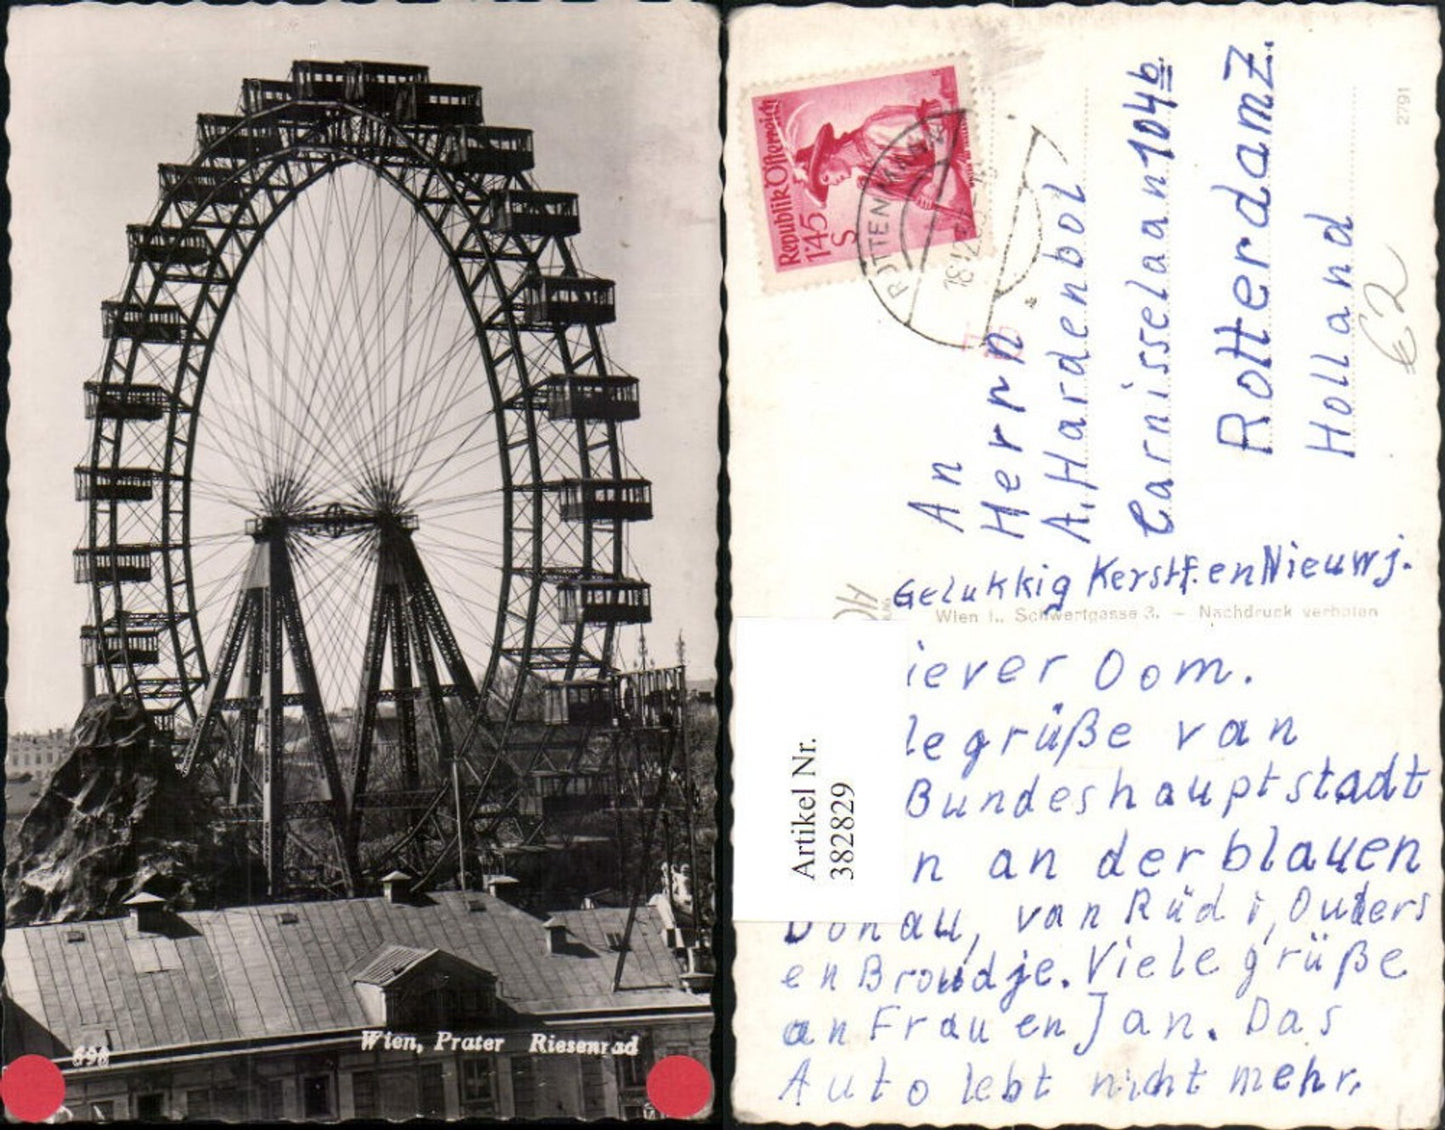 698
Wien, Prater Riesenrad
Republik Österreich
1'45
S
An
Herrn
A. Hardenbol
Carnisselaan 104b
Rotterdam Z.
Holland
2791
€2
Gelukkig Kerstf. en Nieuwj.
Wien I., Schwertgasse 3. – Nachdruck verboten
iever Oom.
legrüße van
Bundeshauptstadt
n an der blauen
Donau, van Rüdi, Ouders
en Broudje. Viele grüße
an Frau en Jan. Das
Auto lebt nicht mehr.
Artikel Nr.
382829